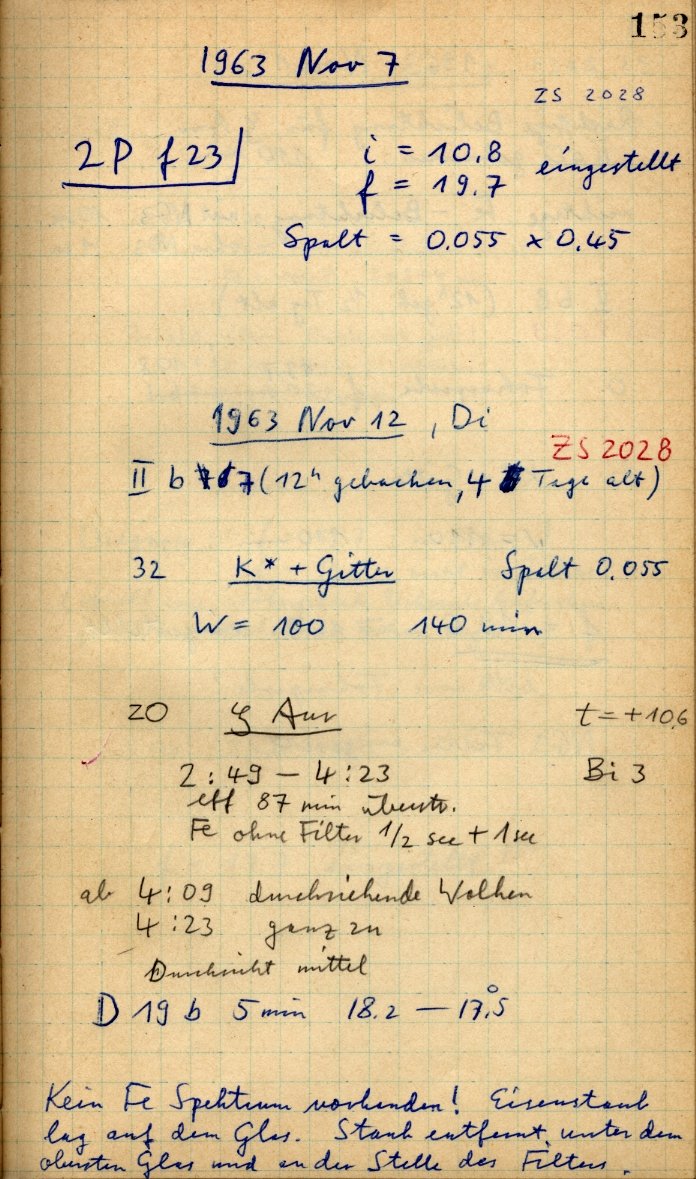 153
1963 Nov 7
ZS 2028
2P f 23
i = 10.8
f = 19.7 eingestellt
Spalt = 0.055 x 0.45
1963 Nov 12, Di
ZS 2028
II b 7 (12h gebacken, 4 Tage alt)
32 K* + Gitter Spalt 0.055
W = 100 140 min
20 ζ Aur t = +10,6
2:49 – 4:23 Bi 3
eff 87 min überstr.
Fe ohne Filter 1/2 sec + 1 sec
ab 4:09 durchziehende Wolken
4:23 ganz zu
Durchsicht mittel
D 19 b 5 min 18.2 – 17.°5
Kein Fe Spektrum vorhanden! Eisenstaub
lag auf dem Glas. Staub entfernt, unter dem
obersten Glas und an der Stelle des Filters.